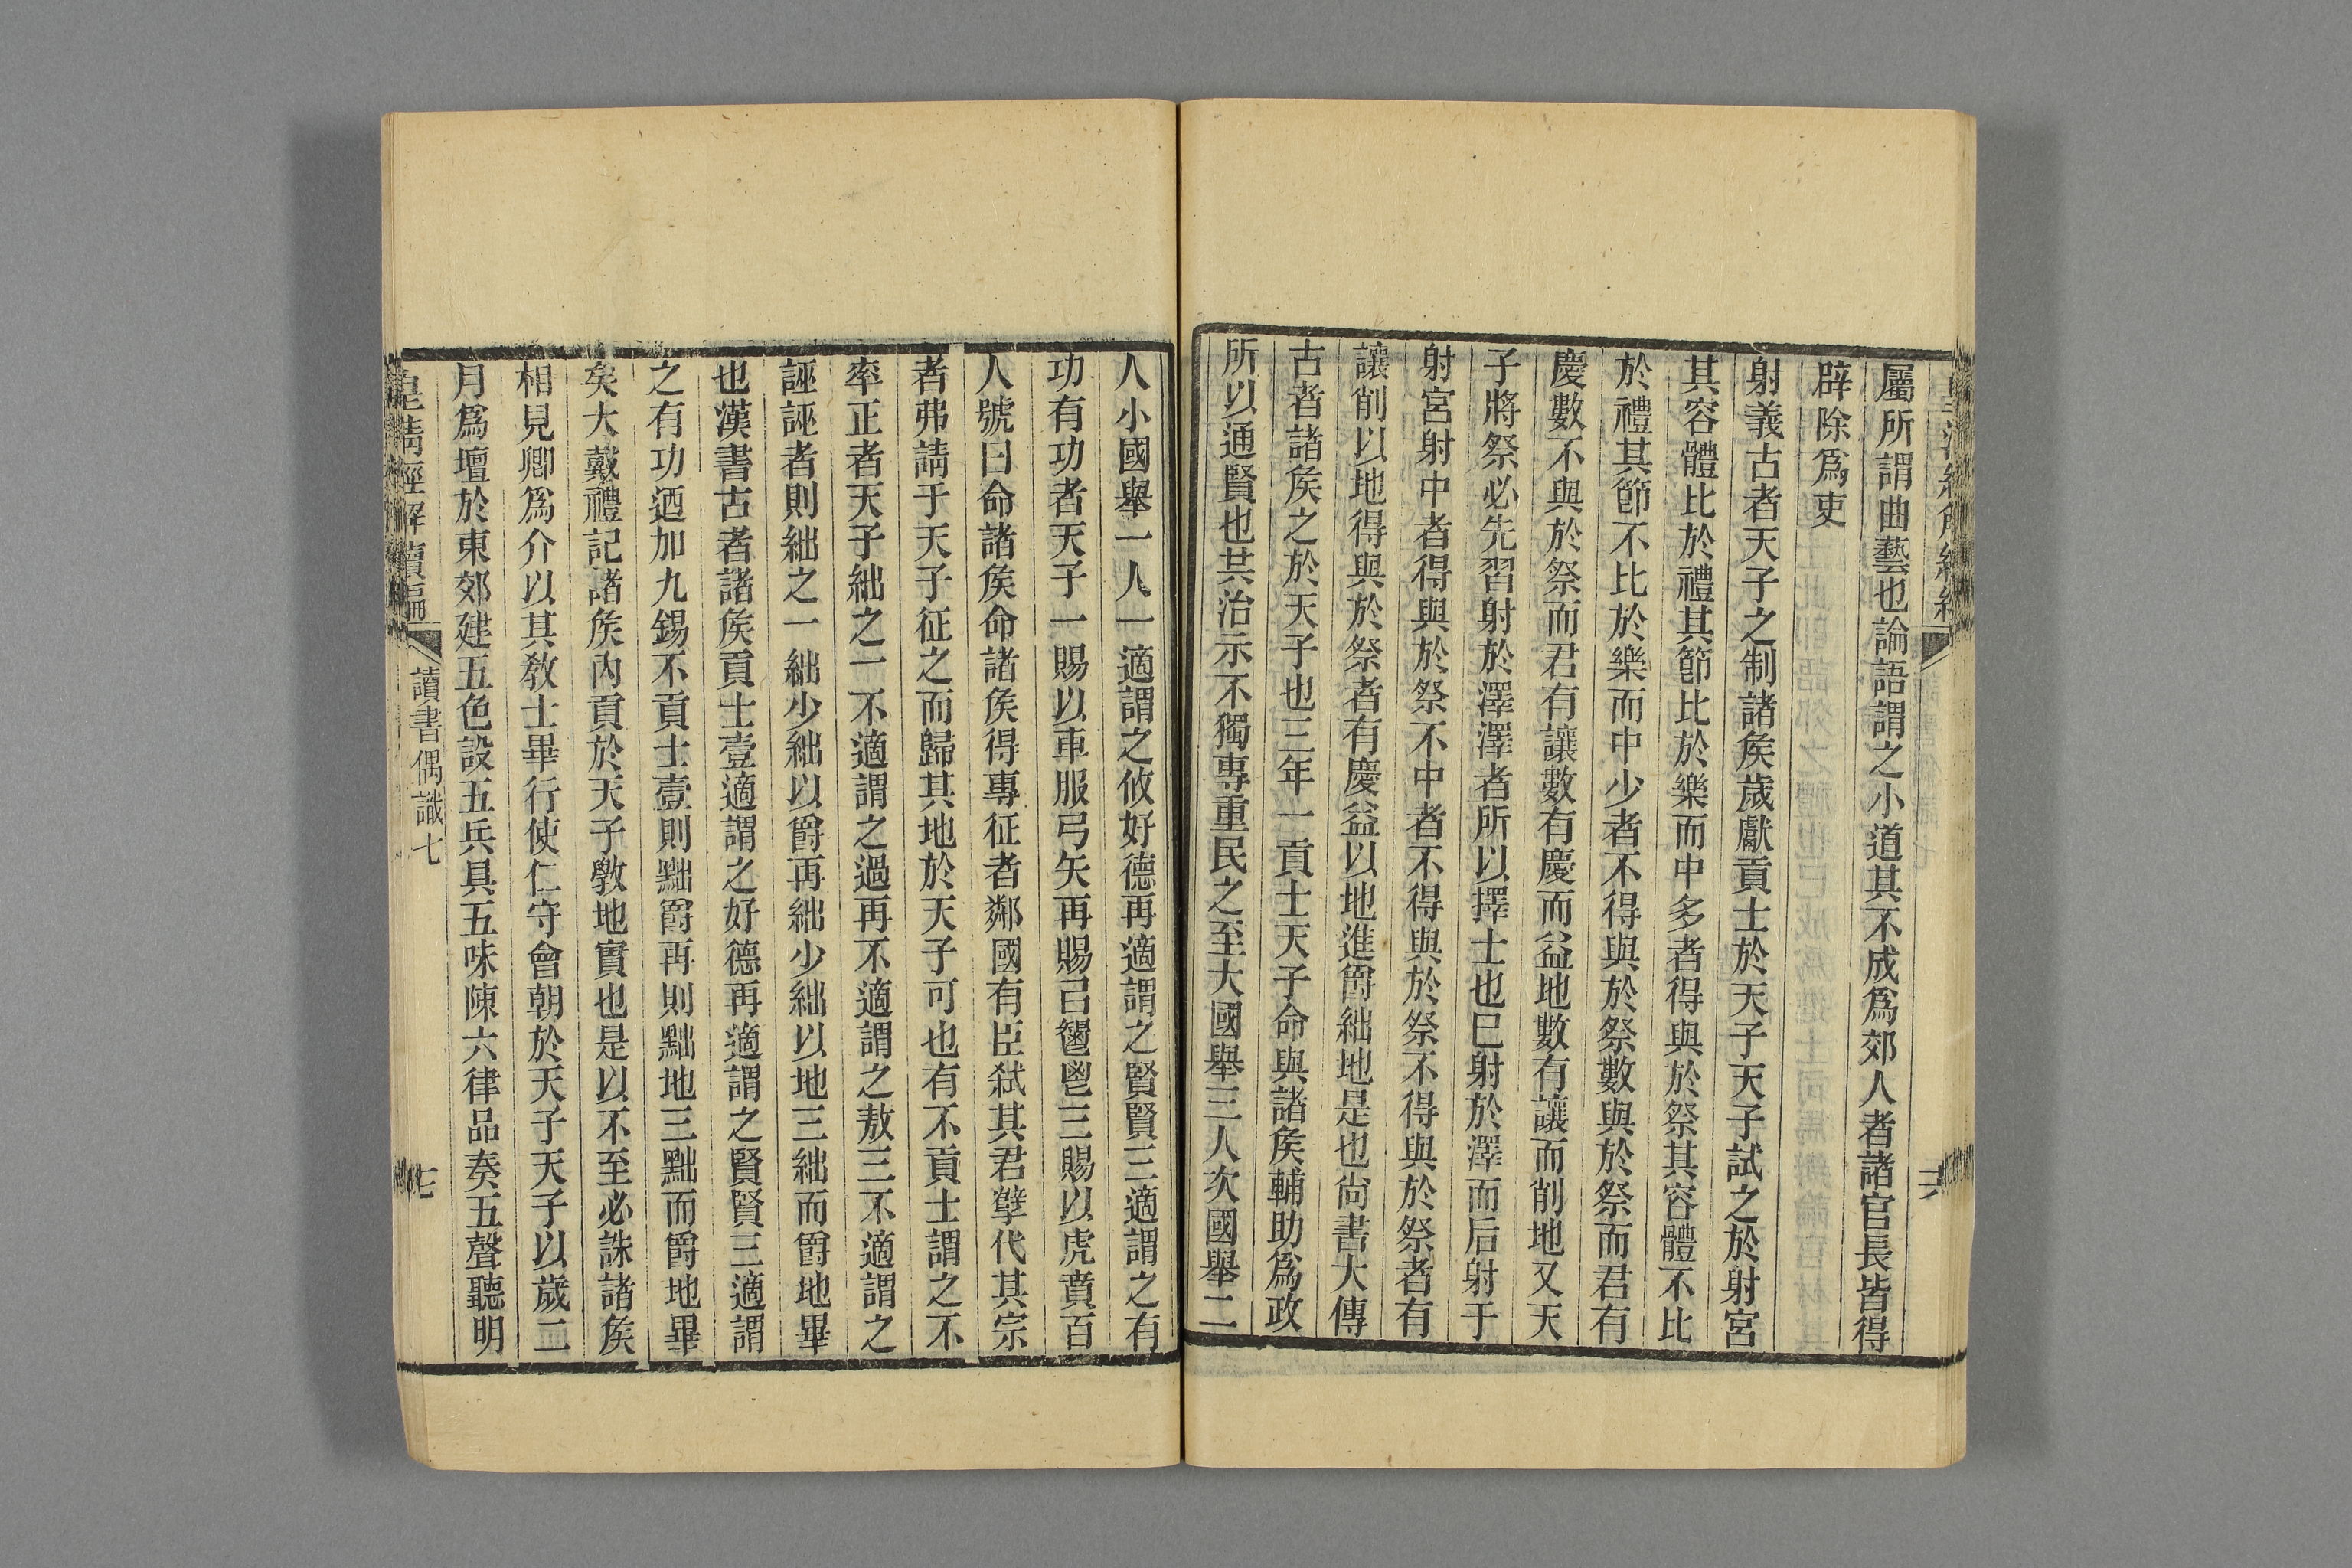 屬所謂曲藝也論語謂之小道其不成爲郊人者諸官長皆得
辟除爲吏
射義古者天子之制諸矦歲獻貢士於天子天子試之於射宮
其容體比於禮其節比於樂而中多者得與於祭其容體不比
於禮其節不比於樂而中少者不得與於祭數與於祭而君有
慶數不與於祭而君有讓數有慶而益地數有讓而削地又天
子將祭必先習射於澤澤者所以擇士也已射於澤而后射于
射宮射中者得與於祭不中者不得與於祭不得與於祭者有
讓削以地得與於祭者有慶益以地進爵絀地是也尙書大傳
古者諸矦之於天子也三年一貢士天子命與諸矦輔助爲政
所以通賢也共治示不獨專重民之至大國舉三人次國舉二
六
人小國舉一人一適謂之攸好德再適謂之賢賢三適謂之有
功有功者天子一賜以車服弓矢再賜己鬯鬯三賜以虎賁百
人號曰命諸矦命諸矦得專征者鄰國有臣弒其君孽代其宗
者弗請于天子征之而歸其地於天子可也有不貢士謂之不
率正者天子絀之一不適謂之過再不適謂之敖三不適謂之
誣誣者則絀之一絀少絀以爵再絀少絀以地三絀而爵地畢
也漢書古者諸矦貢士壹適謂之好德再適謂之賢賢三適謂
之有功迺加九錫不貢士壹則黜爵再則黜地三黜而爵地畢
矣大戴禮記諸矦內貢於天子斆地實也是以不至必誅諸矦
相見卿爲介以其敎士畢行使仁守會朝於天子天子以歲二
月爲壇於東郊建五色設五兵具五味陳六律品奏五聲聽明
皇淸經解續編
讀書偶識七
七